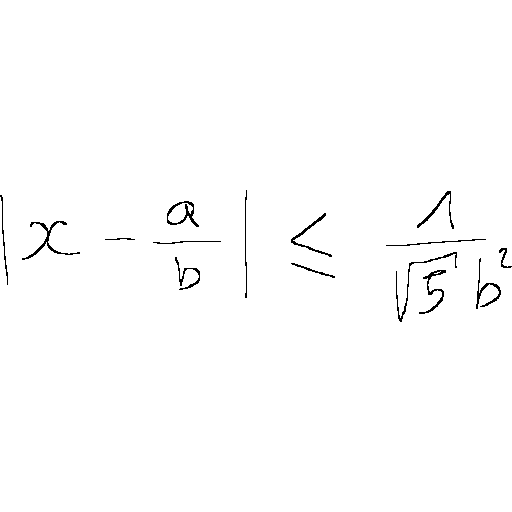 |x - \frac{a}{b}| \leq \frac{1}{\sqrt{5} b^2}